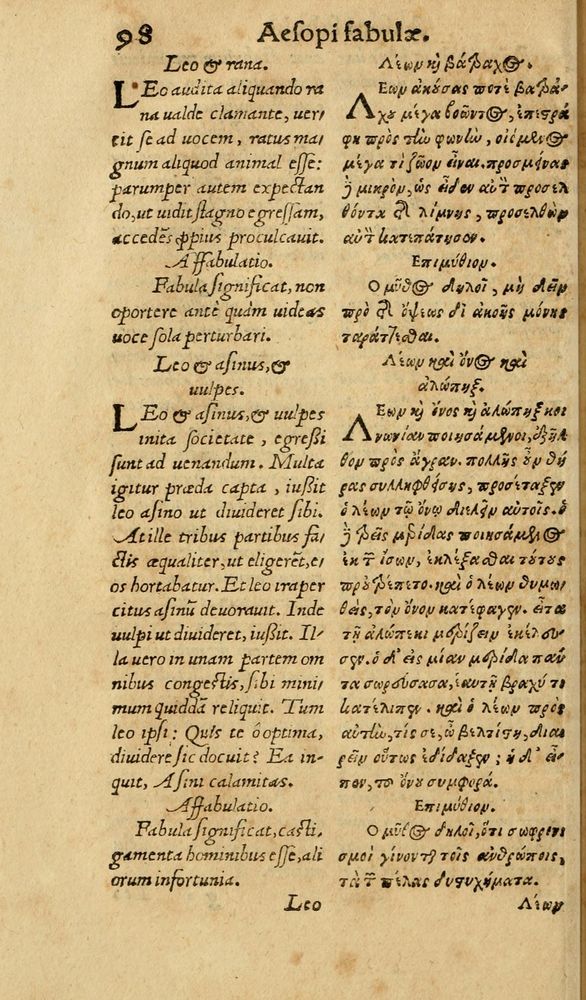 98 Aesopi fabulæ.
Leo & rana.
LEo audita aliquando ra
na ualde clamante, uer/
tit se ad uocem, ratus ma/
gnum aliquod animal esse:
parumper autem expectan
do, ut uidit stagno egressam,
accedẽs ꝓpius proculcauit.
Affabulatio.
Fabula significat, non
oportere antè quàm uideas
uoce sola perturbari.
Leo & asinus, &
uulpes.
LEo & asinus, & uulpes
inita societate, egreßi
sunt ad uenandum. Multa
igitur præda capta, iußit
leo asino ut diuideret sibi.
At ille tribus partibus fa/
ctis æqualiter, ut eligerẽt, e/
os hortabatur. Et leo ira per
citus asinũ deuorauit. Inde
uulpi ut diuideret, iußit. Il/
la uero in unam partem om
nibus congestis, sibi mini/
mum quiddã reliquit. Tum
leo ipsi: Quis te ô optima,
diuidere sic docuit? Ea in-
quit, Asini calamitas.
Affabulatio.
Fabula significat, casti.
gamenta hominibus esse, ali
orum infortunia.
Leo
Λέων καὶ βάτραχος.
ΛΕων ἀκούσας ποτὲ βατρά
χου μέγα βοῶντος, ἐπιστρά
φη πρὸς τὴν φωνὴν, οἰόμενος
μέγα τι ζῶον εἶναι. προσμείνας
ἢ μικρὸν, ὡς εἶδεν αὐτὸν προσελ
θόντα τῆς λίμνης, προσελθὼν
αὐτὸν κατεπάτησεν.
Επιμύθιον.
Ο μῦθος δηλοῖ, μὴ δεῖν
πρὸ τῆς ὄψεως δι' ἀκοῆς μόνης
ταράττεσθαι.
Λέων καὶ ὄνος καὶ
ἀλώπηξ.
ΛΕων καὶ ὄνος καὶ ἀλώπηξ κοι
νωνίαν ποιησάμενοι, ἐξῆλ
θον πρὸς ἄγραν. πολλῆς οὖν θή
ρας συλληφθείσης, προσέταξεν
ὁ λέων τῷ ὄνῳ διελεῖν αὐτοῖς. ὁ
ἢ τρεῖς μερίδας ποιησάμενος
ἐκ τῶν ἴσων, ἐκλέξασθαι τούτους
προὐτρέπετο. καὶ ὁ λέων θυμω/
θεὶς, τὸν ὄνον κατέφαγεν. εἶτα
τῇ ἀλώπεκι μερίζειν ἐκέλευ/
σεν. ὁ δ' εἰς μίαν μερίδα πάν
τα σωρεύσασα, ἑαυτῇ βραχύ τι
κατέλιπεν. καὶ ὁ λέων πρὸς
αὐτὴν, τίς σε, ὦ βελτίστη, διαι
ρεῖν οὕτως ἐδίδαξεν; ἡ δ' εἶ-
πεν, τὸ ὄνου συμφορά.
Επιμύθιον.
Ο μῦθος δηλοῖ, ὅτι σωφρονι
σμοὶ γίνονται τοῖς ἀνθρώποις,
τὰ τῶν πέλας δυστυχήματα.
Λέων